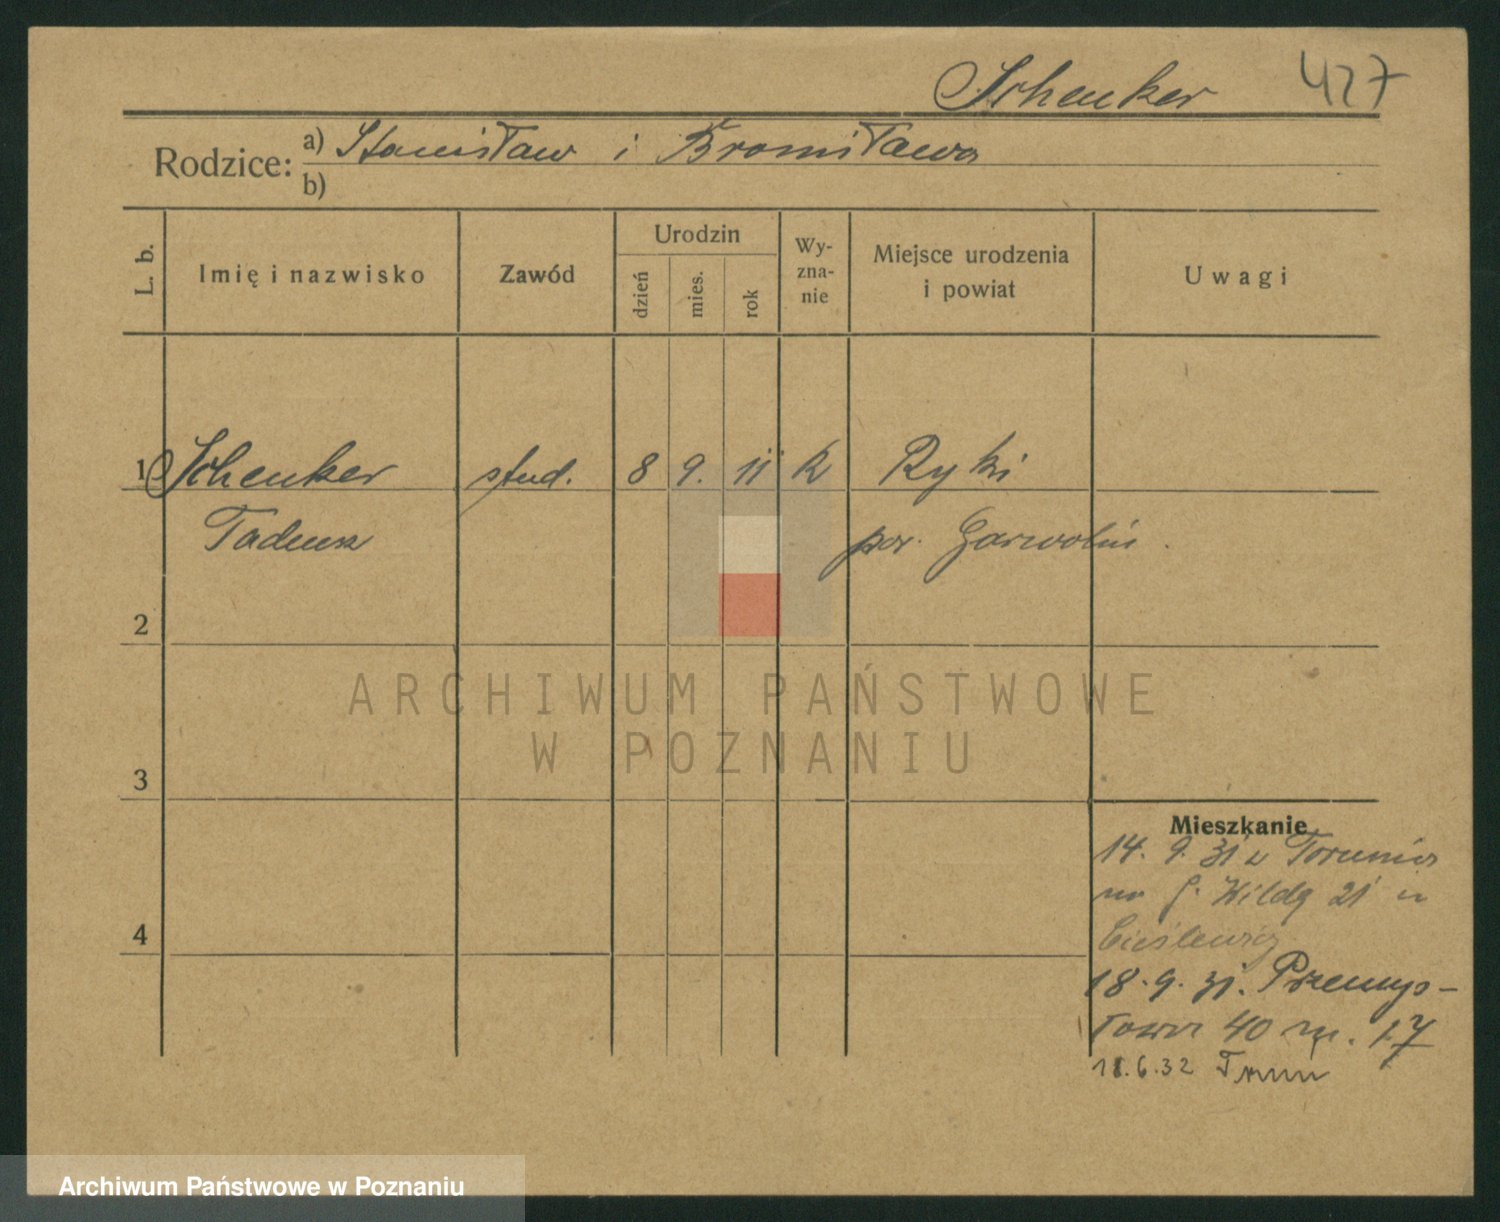 Schenker 427
Rodzice: a) Stanisław i Bronisława
b)
L. b. Imię i nazwisko Zawód Urodzin dzień mies. rok Wy-zna-nie Miejsce urodzenia i powiat Uwagi
1 Schenker stud. 8 9. 11 k Ryki
Tadeusz pow. Garwolin.
2
ARCHIWUM PAŃSTWOWE
W POZNANIU
3
4
Mieszkanie
14. 9. 31 z Torunia
na G. Wildę 21 u
Cieślewicz
18. 9. 31. Przemys-
łowa 40 m. 17
11.6.32 Toruń
Archiwum Państwowe w Poznaniu